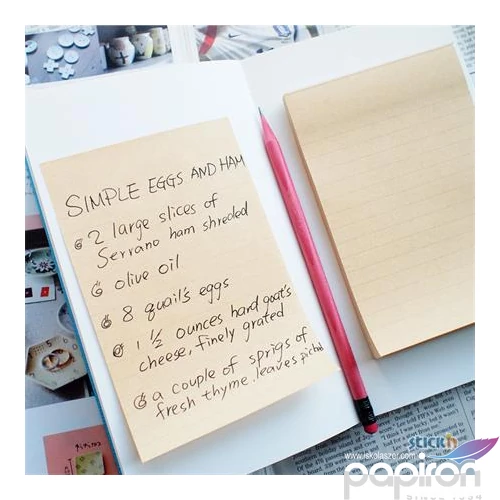 SIMPLE EGGS AND HAM
2 large slices of
Serrano ham shreded
olive oil
8 quail's eggs
1 1/2 ounces hard goat's
cheese, finely grated
a couple of sprigs of
fresh thyme. leaves picked
STICK'N
www.iskolaszer.com
papiron
SINCE 1989